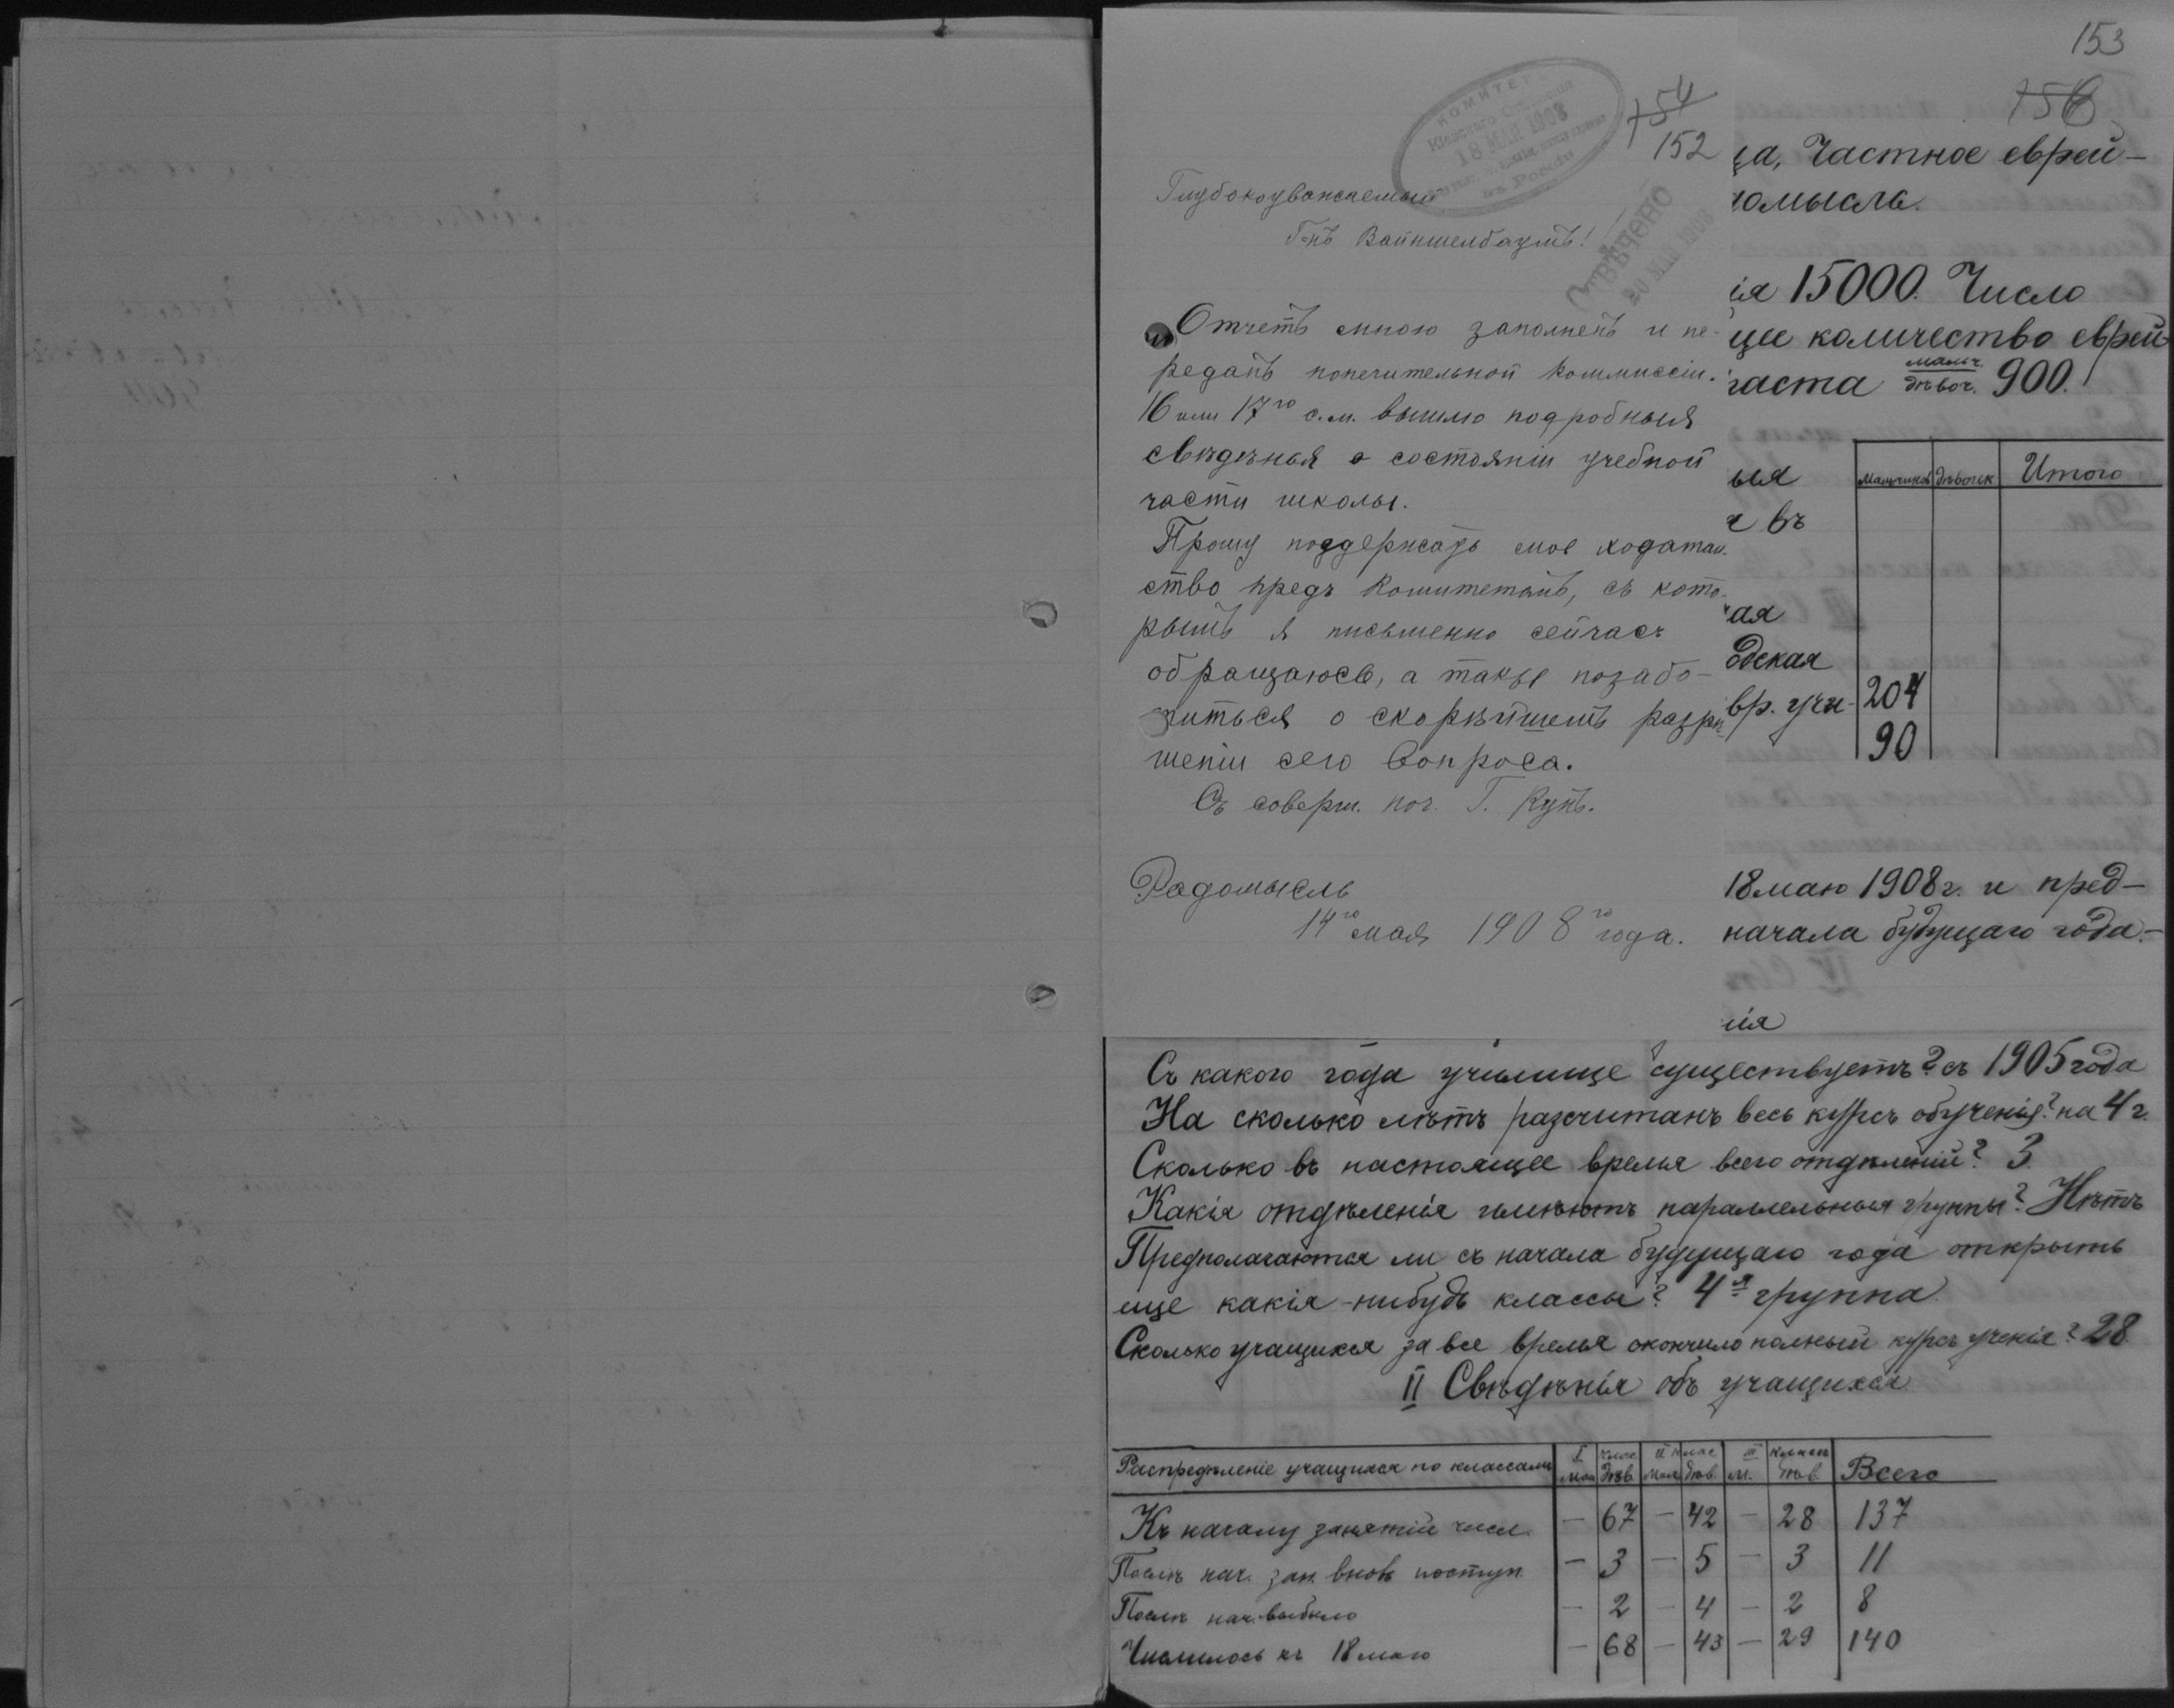 153
156
154
152
КОМИТЕТЪ
Кіевскаго Отдѣленія
18 МАЯ 1908
въ Россіи
ОТВѢЧЕНО
20 МАЯ 1908
Глубокоуважаемый
Г-нъ Вайншелбаумъ!
Отчетъ мною заполненъ и пе-
реданъ попечительной коммиссіи.
16 или 17го с.м. вышлю подробныя
свѣденья о состояніи учебной
части школы.
Прошу поддержать мое ходатай
ство предъ Комитетомъ, съ кото-
рымъ я письменно сейчасъ
обращаюсь, а также позабо-
титься о скорѣйшемъ разрѣ-
шеніи сего вопроса.
Съ соверш. поч. Г. Кунъ.
Радомысль
14го мая 1908го года.
ца, Частное еврей-
омысль.
ія 15000. Число
щее количество еврей
раста мальч. дѣвоч. 900.
ыя
Мальчиковъ Дѣвочек Итого
и въ
ая
одская
вр. учи- 204
90
18 маю 1908 г. и пред-
начала будущаго года.-
нія
Съ какого года училище существуетъ? съ 1905 года
На сколько лѣтъ разсчитанъ весь курсъ обученія? на 4 г.
Сколько въ настоящее время всего отдѣленій? 3.
Какія отдѣленія имѣютъ параллельныя группы? Нѣтъ
Предполагаются ли съ начала будущаго года открыть
еще какія-нибудь классы? 4я группа
Сколько учащихся за все время окончило полный курсъ ученія? 28
II Свѣдѣнія объ учащихся
Распредѣленіе учащихся по классамъ I клас II клас III классъ Всего
мал дѣв. мал дѣв. м. дѣв.
Къ началу занятій числ. — 67 — 42 — 28 137
Послѣ нач. зан. вновь поступ. — 3 — 5 — 3 11
Послѣ нач. выбыло — 2 — 4 — 2 8
Числилось къ 18 маю — 68 — 43 — 29 140